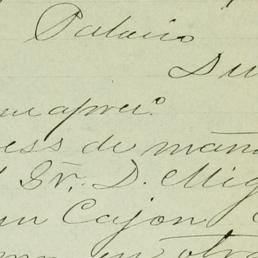 Palacio
Du
me apreci.º
ess de man
l Sr. D. Mig
un Cajon
en otra